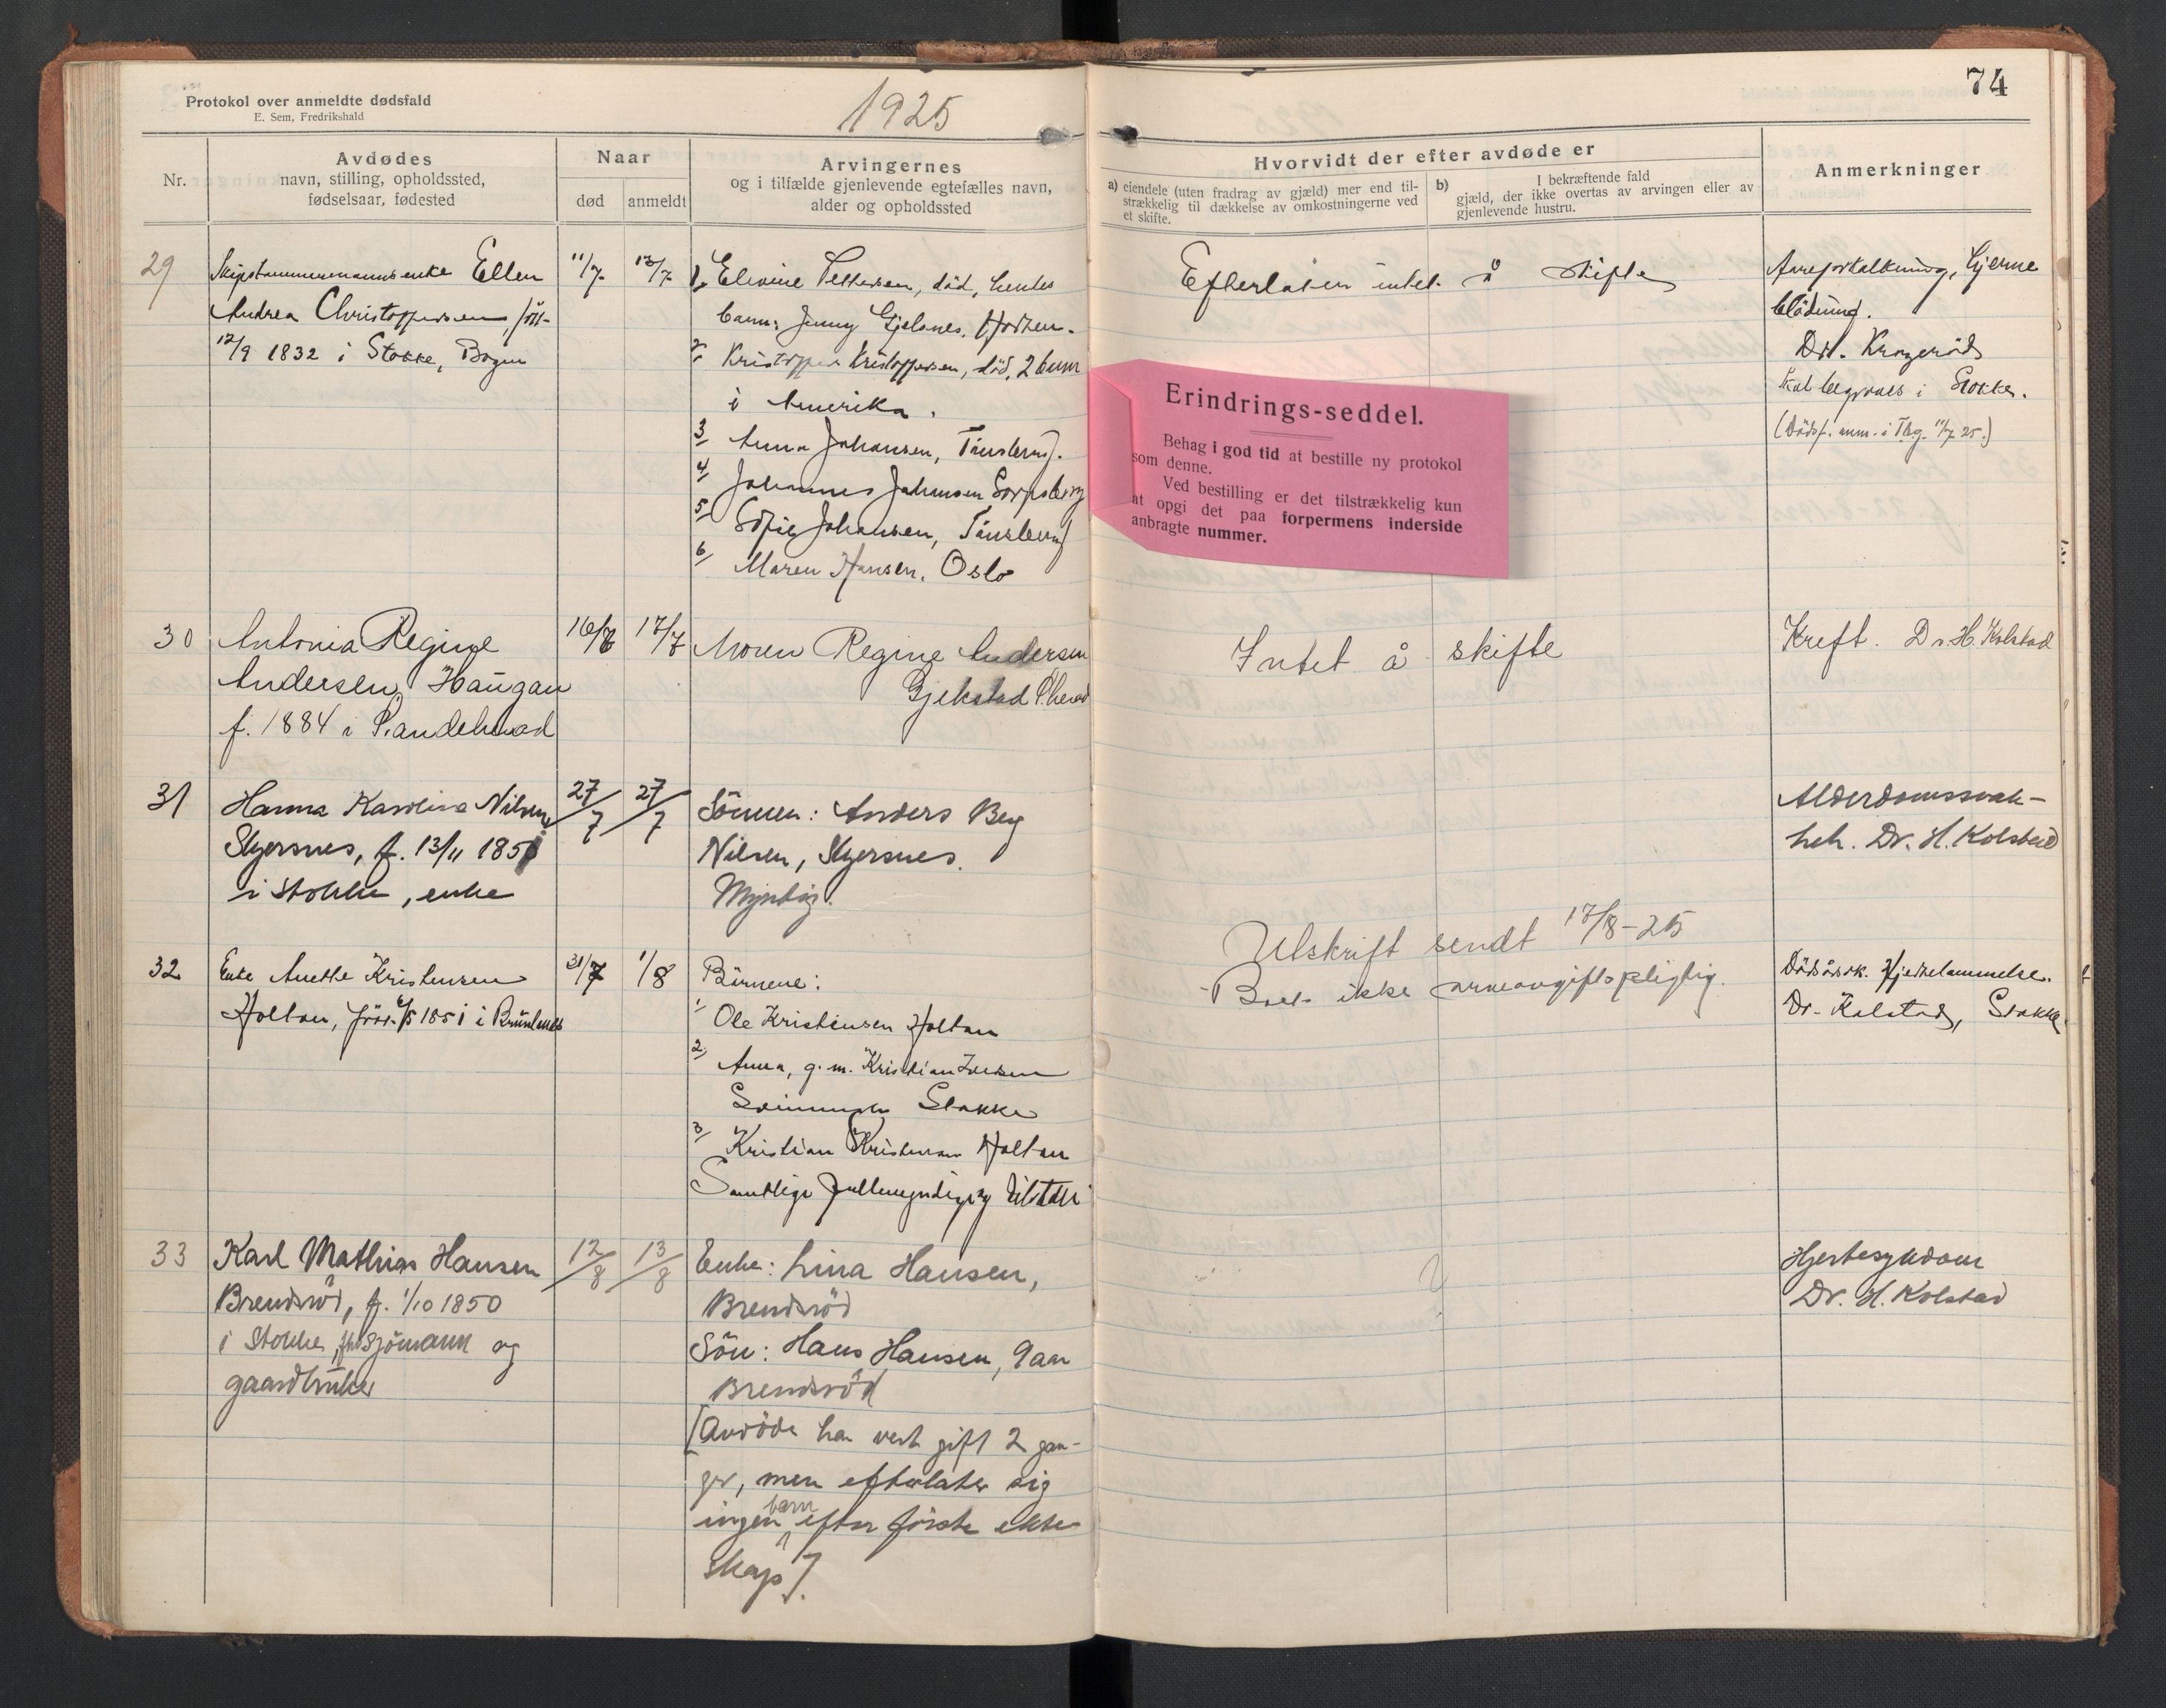 74
Protokol over anmeldte dødsfald
E. Sem, Fredrikshald
1925
Nr.
Avdødes
navn, stilling, opholdssted,
fødselsaar, fødested
Naar
død
anmeldt
Arvingernes
og i tilfælde gjenlevende egtefælles navn,
alder og opholdssted
Hvorvidt der efter avdøde er
a) eiendele (uten fradrag av gjæld) mer end til-
strækkelig til dækkelse av omkostningerne ved
et skifte.
b) I bekræftende fald
gjæld, der ikke overtas av arvingen eller av
gjenlevende hustru.
Anmerkninger
29
Skipstømmermannsenke Ellen
Andrea Christoffersen, født
12/9 1832 i Stokke, Bogen
11/7.
13/7
1, Elevine Pettersen, död, hendes
barn: Jenny Gjelsnes, Horten.
2, Kristoffer Kristoffersen, död, 2 barn
i Amerika.
3, Anna Johansen, Tönsberg.
4, Johannes Johansen Sarpsborg
5, Sofie Johansen, Tönsberg
6, Maren Hansen, Oslo
Efterlater intet å skifte
Aareforkalkning, Hjerne
blödning.
Dr. Krogeröd
Skal begraves i Stokke.
(Dödsf. anm. i Tbg. 11/7 25.)
Erindrings-seddel.
Behag i god tid at bestille ny protokol
som denne.
Ved bestilling er det tilstrækkelig kun
at opgi det paa forpermens inderside
anbragte nummer.
30
Antonia Regine
Andersen, Haugan
f. 1884 i Sandeherad
16/7
17/7
Moren Regine Andersen
Gjekstad S.herad
Intet å skifte
Kreft. Dr. H. Kolstad
31
Hanna Karolina Nilsen,
Skjersnes, f. 13/11 185
i Stokke, enke
27/7
27/7
Sönnen: Anders Berg
Nilsen, Skjersnes.
Myndig.
Alderdomssvak-
het. Dr. H. Kolstad
32
Enke Anette Kristensen
Holtan, född 6/5 1851 i Brunlanes
31/7
1/8
Börnene:
1, Ole Kristensen Holtan
2, Anna, g. m. Kristian
Stokke
3, Kristian Kristensen Holtan
Samtlige fullmyndige og tilstede
Utskrift sendt 17/8-25
Boet ikke arveavgiftspligtig.
Dödsårsk. Hjertelammelse.
Dr. Kolstad, Stokke.
33
Karl Mathias Hansen
Brendsröd, f. 1/10 1850
i Stokke, fhv sjömann og
gaardbruker
12/8
13/8
Enke: Lina Hansen,
Brendsröd
Sön: Hans Hansen, 9 aar
Brendsröd
[Avdöde har vert gift 2 gan-
ger, men efterlater sig
ingen barn efter förste ekte-
skap].
Hjertesykdom
Dr. H. Kolstad